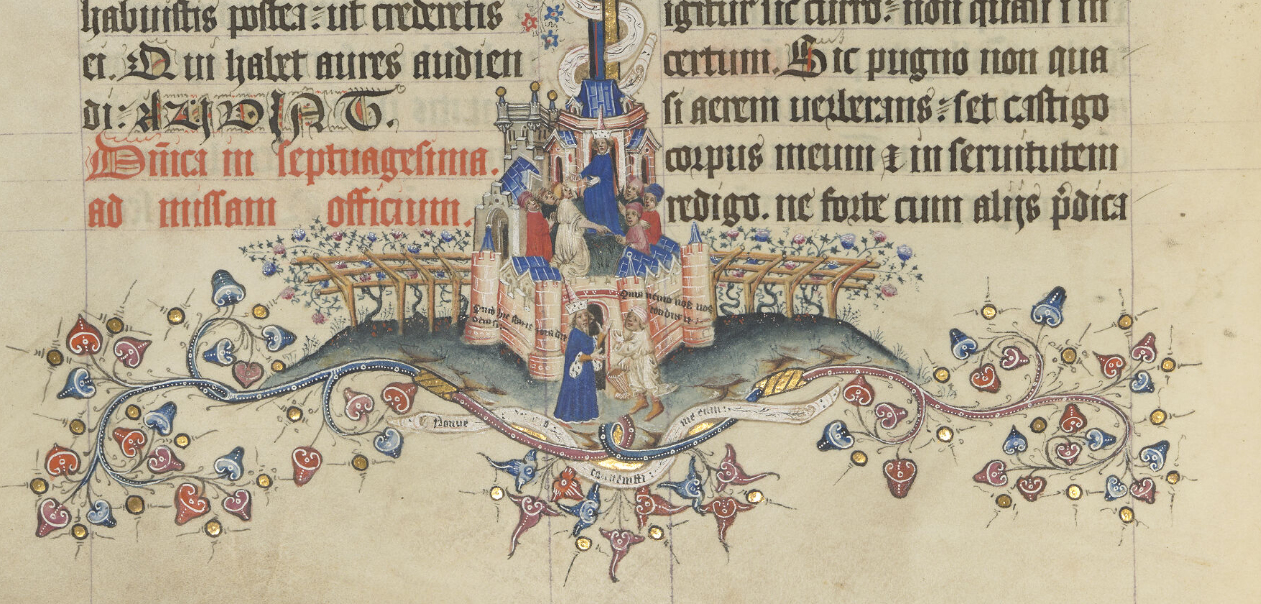 habuistis postea: ut crederetis
ei. Qui habet aures audien
di: AUDIAT.
Dn̄ica in septuagesima.
ad missam officium.
igitur sic curro: non quasi i in
certum. Sic pugno non qua
si aerem uerberans: set castigo
corpus meum ⁊ in seruitutem
redigo. ne forte cum alijs p̄dica
Quia nemo nos
conduxit
Nonne
mecum
conuenisti